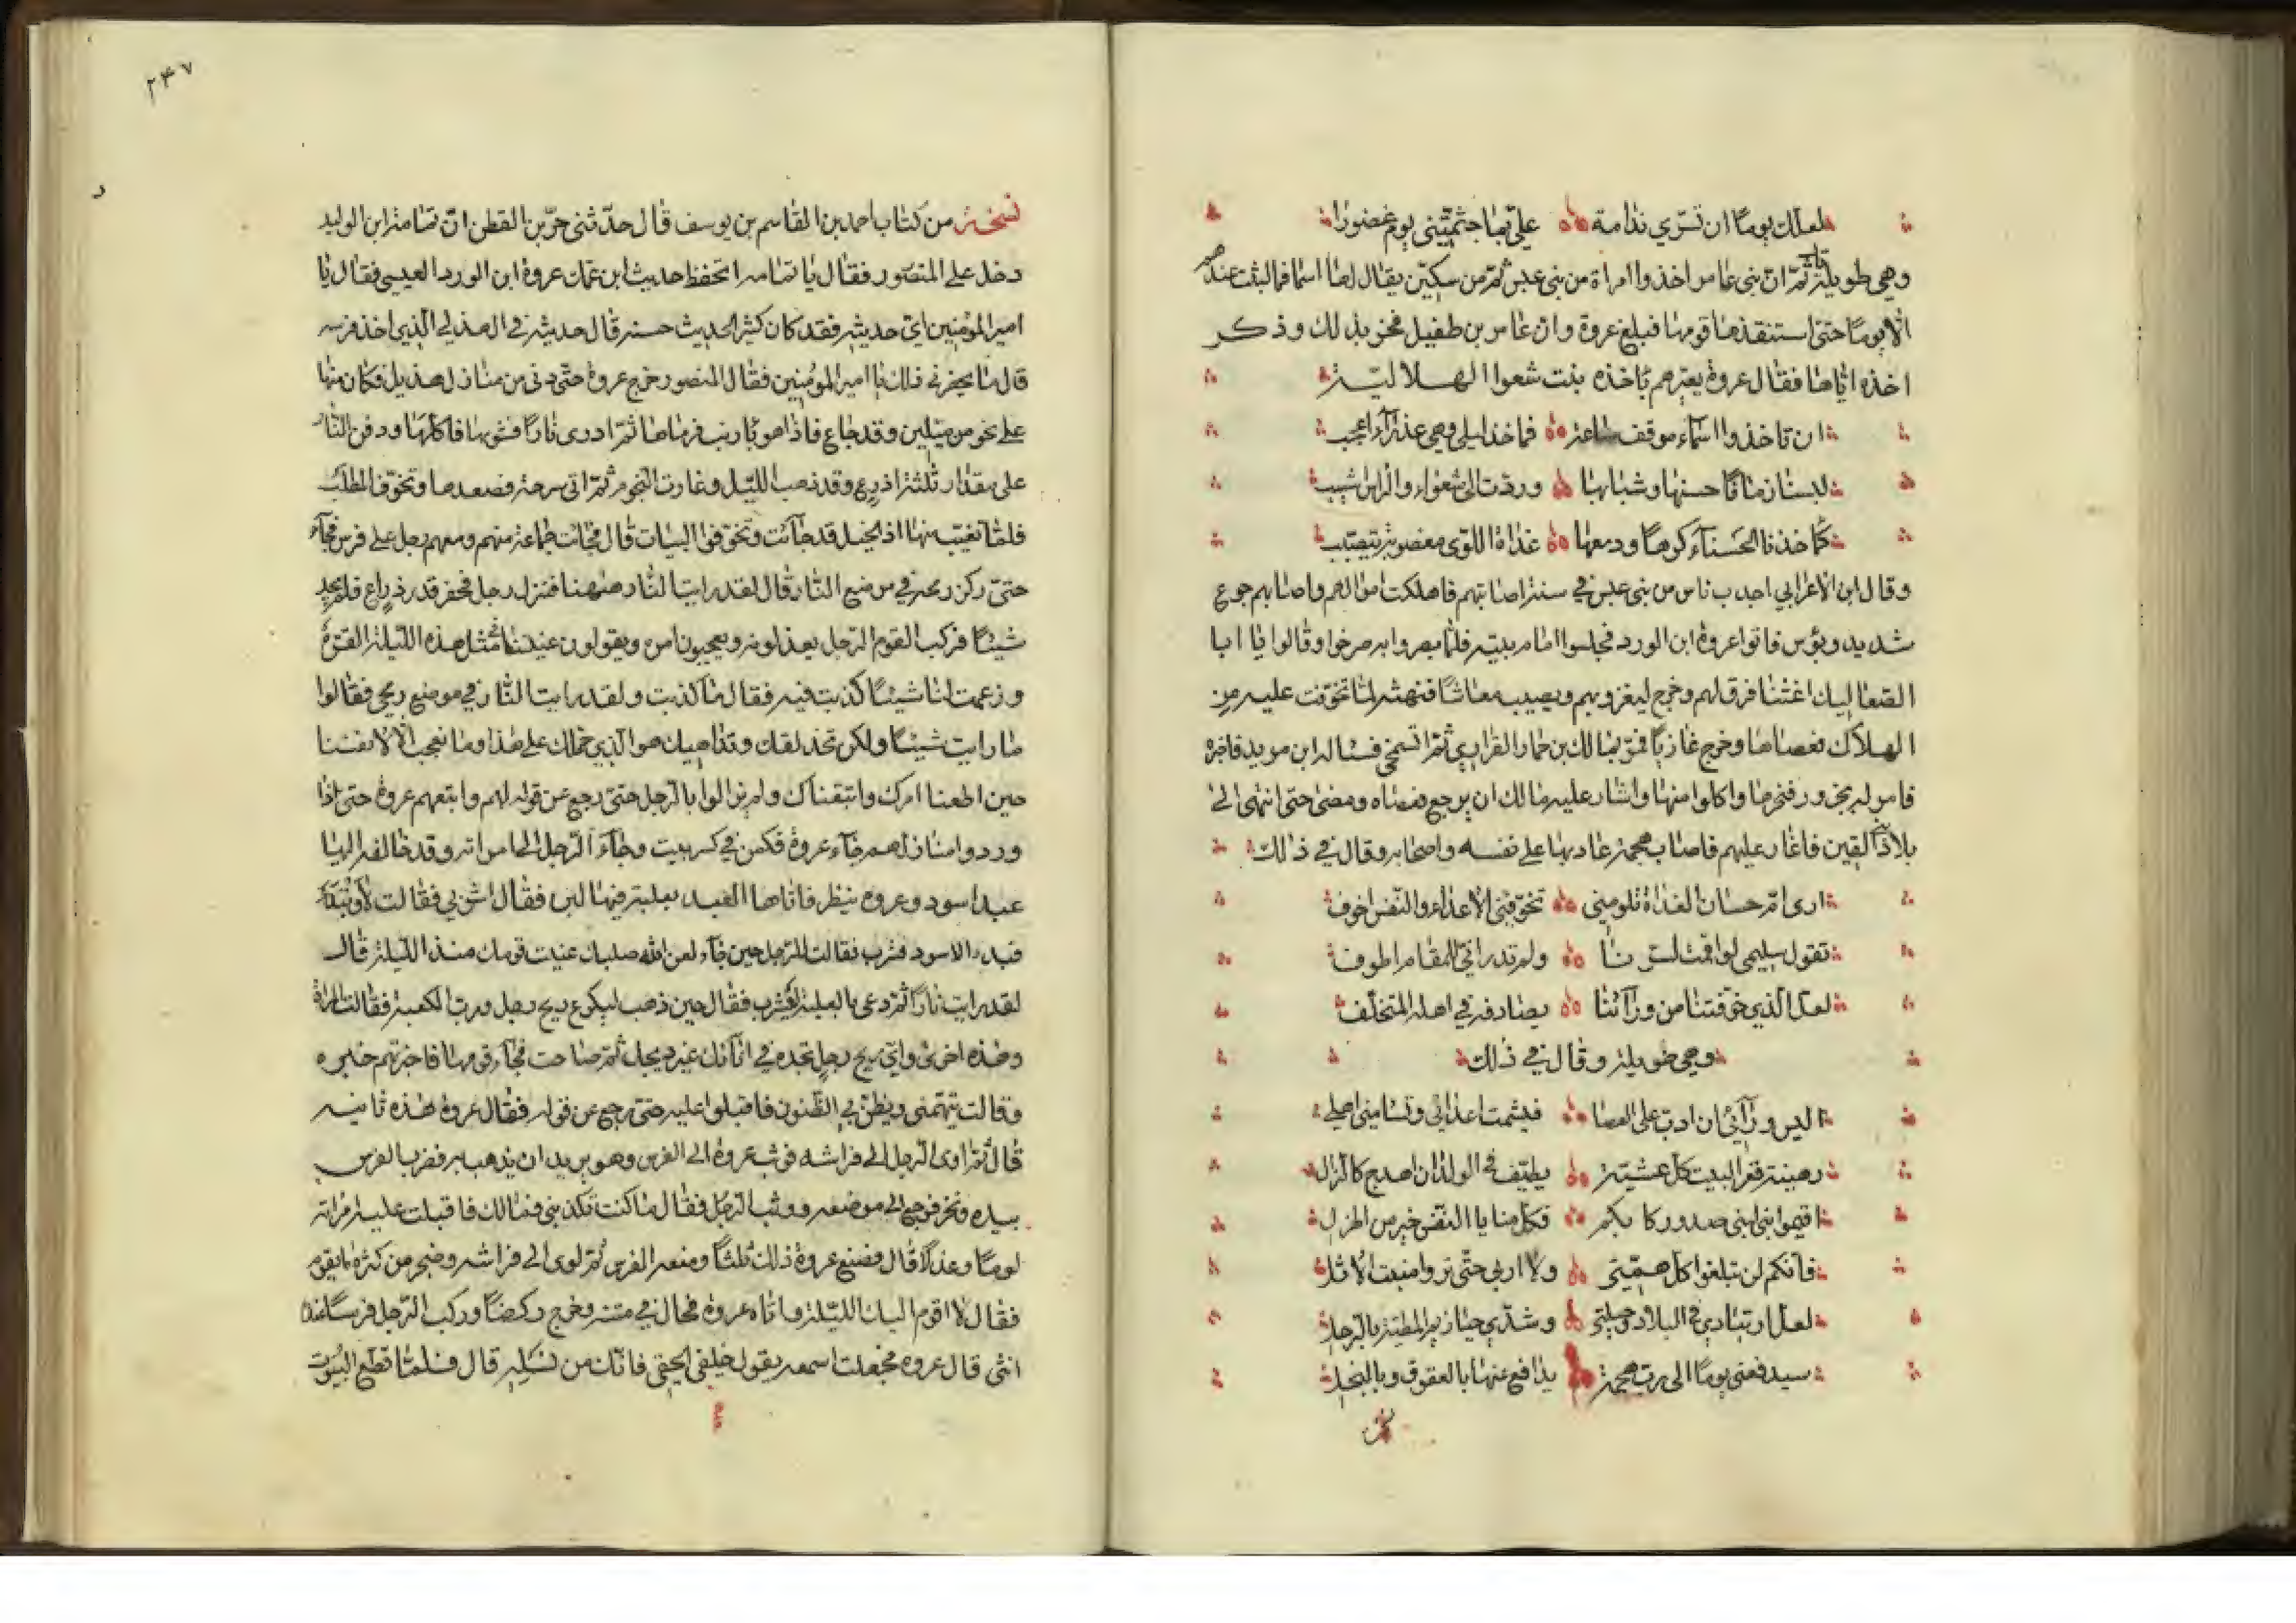 لعلك يوما ان تسري ندامة علي بما جشمتني يوم غضورا
وهي طويلة قال ثم ان بني عامر اخذوا امراة من بني عبس ثم من سكين يقال لها اسما فما لبثت عندهم
الا يوما حتى استنقذها قومها فبلغ عروة وان عامر بن طفيل فخر بذلك وذكر
اخذه اياها فقال عروة يعيرهم باخذه بنت شعوا الهلالية
ان تاخذوا اسماء موقف ساعة فماخذ ليلى وهي عذراء اعجب
لبسنا زمانا حسنها وشبابها وردت الى شعواء والراس اشيب
كماخذنا الحسناء كرها ودمعها غداة اللوى مغصوبة يتصبب
وقال ابن الاعرابي اجدب ناس من بني عبس في سنة اصابتهم فاهلكت اموالهم واصابهم جوع
شديد وبؤس فاتوا عروة ابن الورد فجلسوا امام بيته فلما بصروا به صرخوا وقالوا يا ابا
الصعاليك اغثنا فرق لهم وخرج ليغزو بهم ويصيب معاشا فنهته لما تخوفت عليه من
الهلاك فعصاها وخرج غازيا فمر بمالك بن حمار الفزاري ثم الشمخي فساله اين مريد فاخبره
فامر له بجزور فنحرها واكلوا منها واشار عليه مالك ان يرجع فعصاه ومضى حتى انتهى الى
بلاد بني القين فاغار عليهم فاصاب هجمة عاد بها على نفسه واصحابه وقال في ذلك
ارى ام حسان الغداة تلومني تخوفني الاعداء والنفس اخوف
تقول سليمى لو اقمت لسرنا ولم تدر اني للمقام اطوف
لعل الذي خوفتنا من ورائنا يصادفه في اهله المتخلف
وهي طويلة وقال في ذلك
اليس ورائي ان ادب على العصا فيشمت اعدائي وتسامني اهلي
رهينة قعر البيت كل عشية يطيف بي الولدان اهدج كالرال
اقيموا بني لبنى صدور ركابكم فكل منايا النفس خير من الهزل
فانكم لن تبلغوا كل همتي ولا اربي حتى تروا منبت الاثل
لعل ارتيادي في البلاد وحيلتي وشدي حيازيم المطية بالرحل
سيدفعني يوما الى رب هجمة يدافع عنها بالعقوق وبالبخل
٢٤٧
نسخة من كتاب احمد بن القاسم بن يوسف قال حدثني حر بن القطن ان ثمامة ابن الوليد
دخل على المنصور فقال يا ثمامه اتحفظ حديث ابن عمك عروة ابن الورد العبسي فقال يا
امير المؤمنين اي حديثه فقد كان كثير الحديث حسنه قال حديثه في الهذلي الذي اخذ فرسه
قال ما يحضرني ذلك يا امير المؤمنين فقال المنصور خرج عروة حتى دنى من منازل هذيل فكان منها
على نحو من ميلين وقد جاع فاذا هو بارنب فرماها ثم اورى نارا فشوبها فاكلها ودفن النار
على مقدار ثلثة اذرع وقد ذهب الليل وغارت النجوم ثم اتى سرحة فصعدها وتخوف الطلب
فلما تغيب منها اذ الخيل قد جائت وتخوفوا البيات قال فجائت جماعة منهم ومعهم رجل على فرس فجاء
حتى ركز رمحه في موضع النار وقال لقد رايت النار هيهنا فنزل رجل فحفر قدر ذراع فلم يجد
شيئا فركب القوم الرجل يعذلونه ويعيبون امره ويقولون عنيتنا في مثل هذه الليلة القرة
وزعمت لنا شيئا كذبت فيه فقال ما كذبت ولقد رايت النار في موضع رمحي فقالوا
ما رايت شيئا ولكن تحذلقك وتداهيك هو الذي حملك على هذا وما نعجب الا لانفسنا
حين اطعنا امرك واتبعناك ولم يزالوا بالرجل حتى رجع عن قوله لهم واتبعهم عروة حتى اذا
وردوا منازلهم جاء عروة فكمن في كسر بيت وجاء الرجل الى امراته وقد خالفه اليها
عبد اسود وعروه ينظر فاتاها العبد بعلبة فيها لبن فقال اشربي فقالت لا او تبدأ
فبدء الاسود فشرب فقالت للرجل حين جاء لعن الله صلبك عنيت قومك منذ الليلة قال
لقد رايت نارا ثم دعى بالعلبة ليشرب فقال حين ذهب ليكرع ريح رجل ورب الكعبة فقالت امراة
وهذه اخرى واي ريح رجل تجده في انائك غير ريحك ثم صاحت فجاء قومها فاخبرتهم خبره
وقالت يتهمني ويظن بي الظنون فاقبلوا عليه حتى رجع عن قوله فقال عروة هذه ثانيه
قال ثم اوى الرجل الى فراشه فوثب عروة الى الفرس وهو يريد ان يذهب به فضرب الفرس
بيده ونخر فرجع الى موضعه ووثب الرجل فقال ما كنت تكذبني فمالك فاقبلت عليه امراته
لوما وعذلا قال فصنع عروة ذلك ثلثا ومنعه الفرس ثم لوى الى فراشه وضجر من كثرة ما يقوم
فقال لا اقوم اليك الليلة واتاه عروة فحال في متنه وخرج ركضا وركب الرجل فرسا عنده
انثى قال عروه فجعلت اسمعه يقول خلفي الحقي فانك من نسله قال فلما قطع البيوت